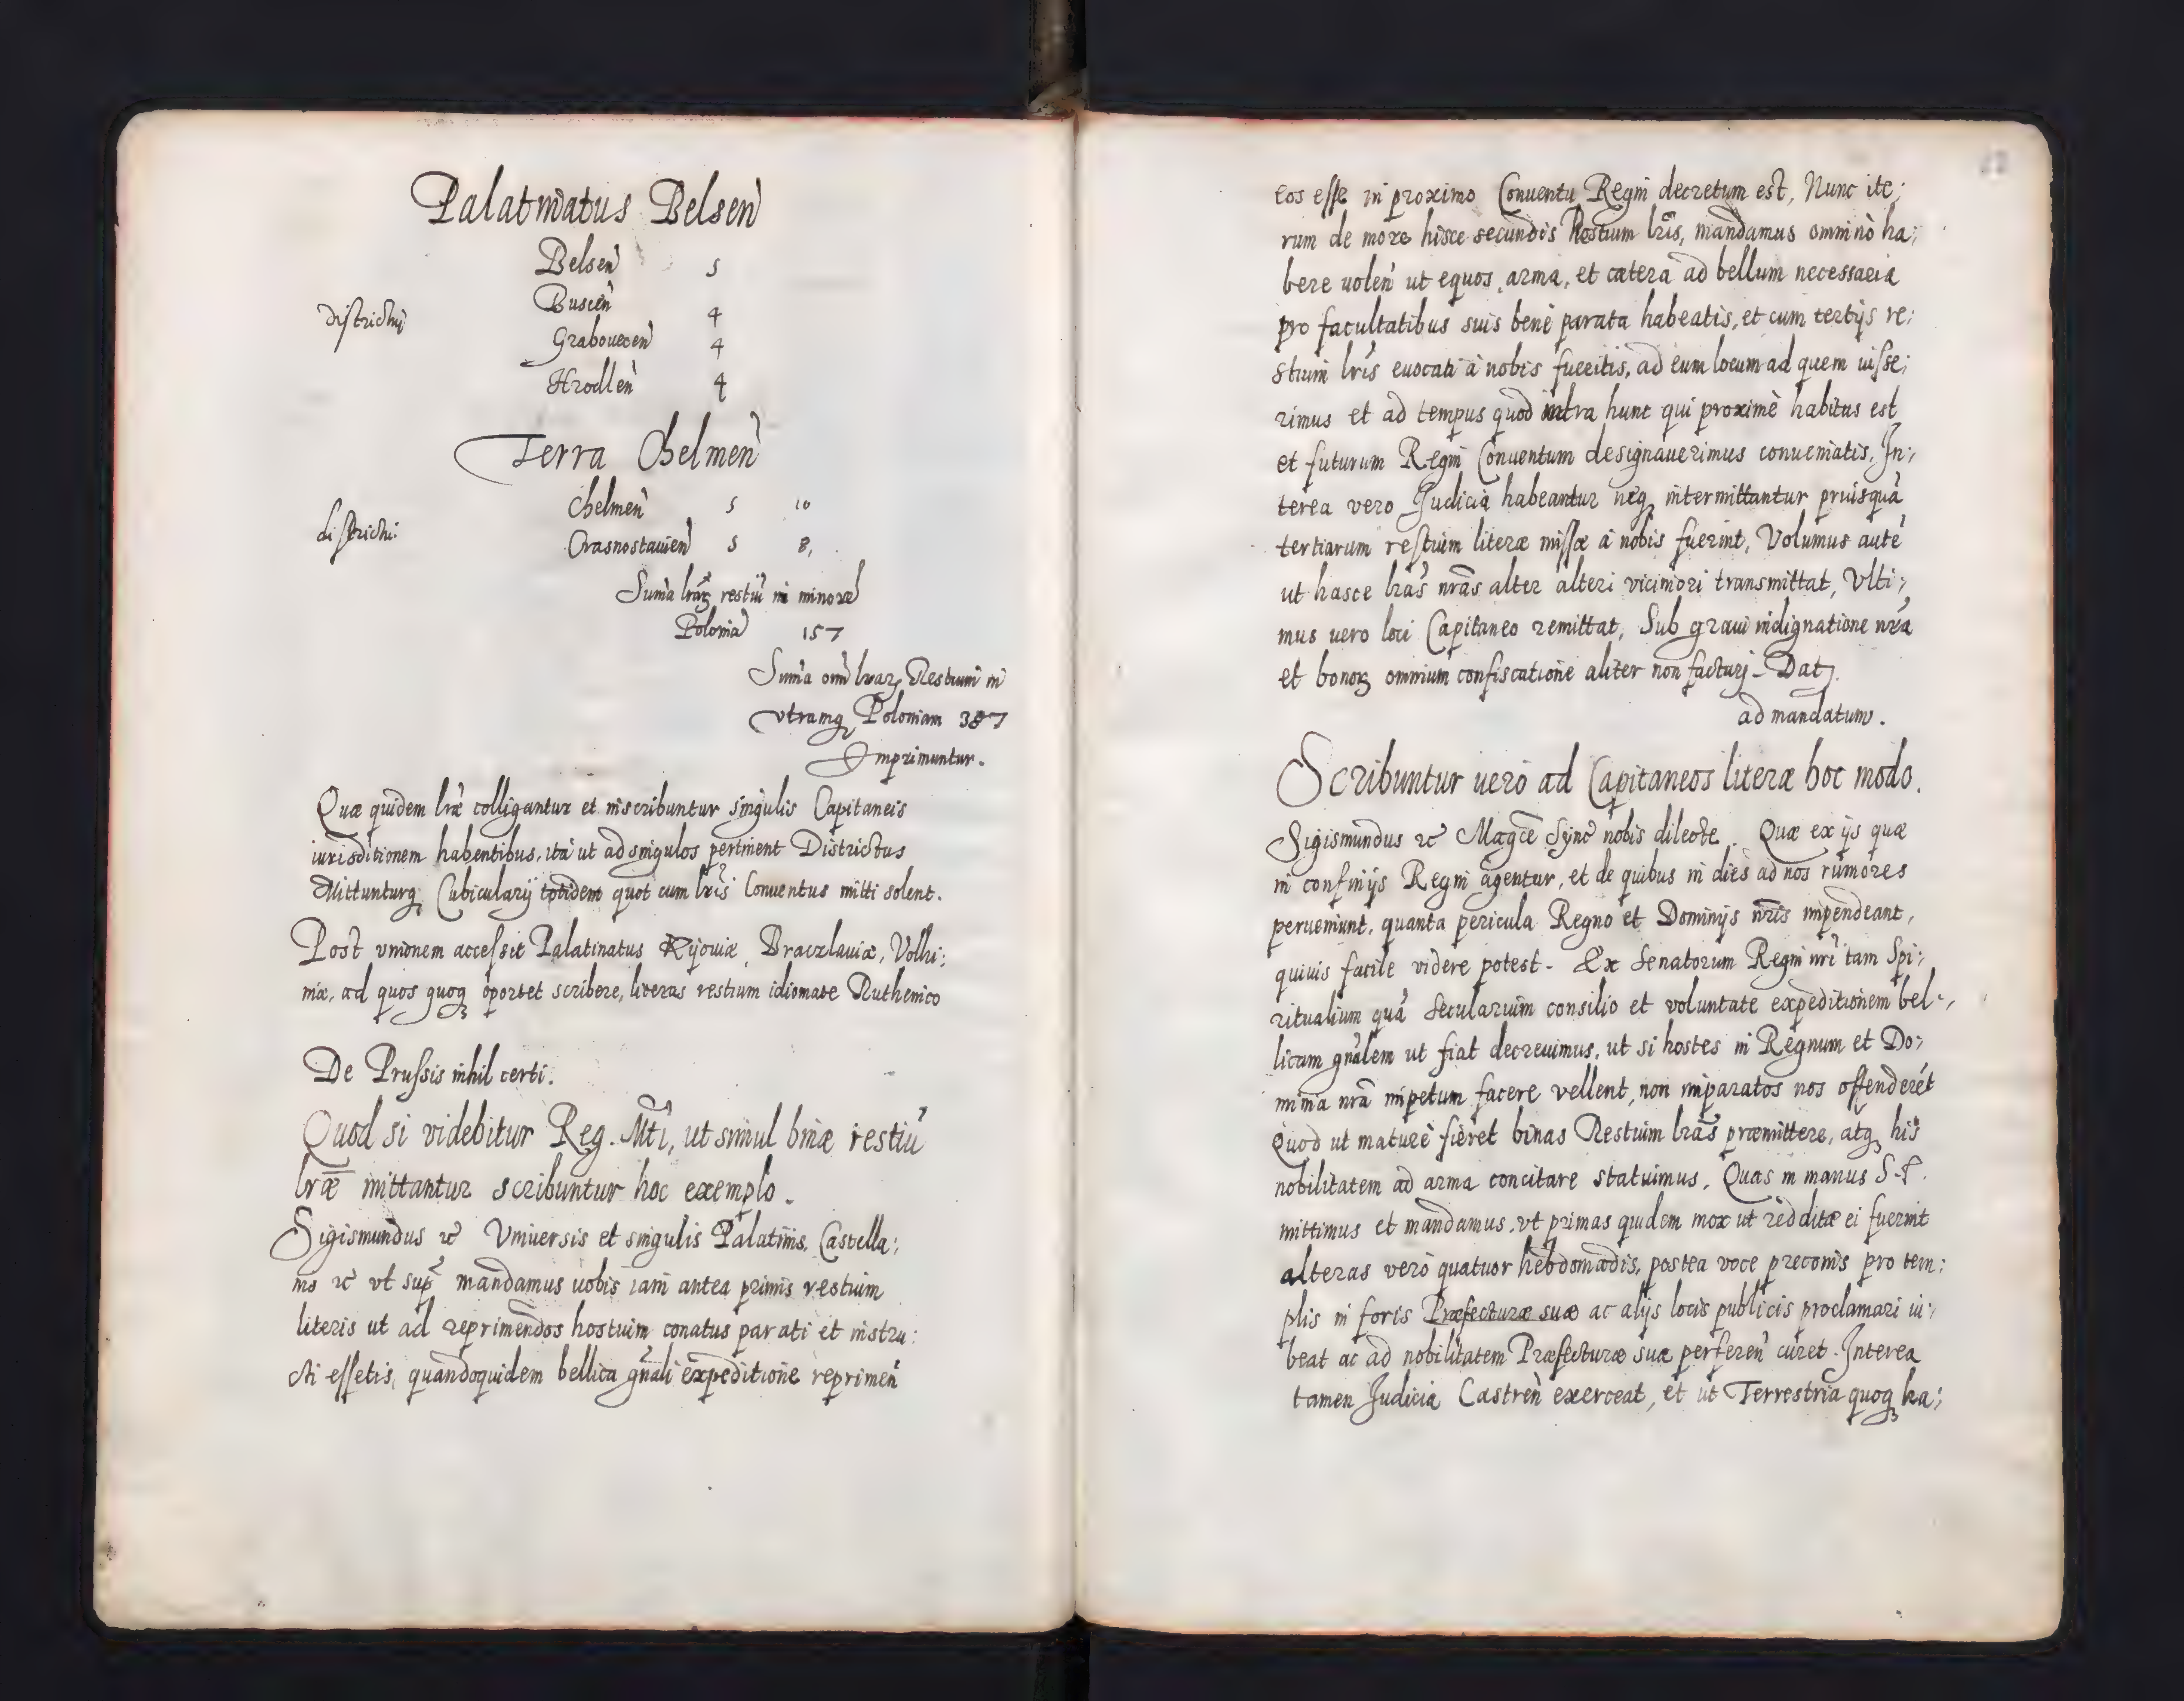 Palatinatus Belseñ
Belseñ 5
districtuj Busceñ 4
Graboueceñ 4
Hrodleñ 4
Terra Chelmeñ
Chelmeñ 5 10
districtu: Crasnostauieñ 5 8,
Suma lrarꝫ restiũ in minore
Polonia 157
Suma oim lrarꝫ Restium in
vtramqꝫ Poloniam 387
Imprimuntur.
Quæ quidem lræ colligantur et inscribuntur singulis Capitaneis
iurisditionem habentibus, ita ut ad singulos pertinent Districtus
Mittunturqꝫ Cubicularij totidem quot cum lris Conuentus mitti solent.
Post vnionem accessit Palatinatus Kijouiæ, Braczlauiæ, Volhi:
niæ, ad quos quoqꝫ oportet scribere, literas restium idiomate Ruthenico
De Prussis nihil certi.
Quod si videbitur Reg. Mti, ut simul binæ restiũ
lræ mittantur scribuntur hoc exemplo.
Sigismundus etc Vniuersis et singulis Palatinis, Castella:
nis etc vt sup mandamus uobis iam antea primis restium
literis ut ad reprimendos hostium conatus parati et instru:
cti essetis, quandoquidem bellica gñali expeditione reprimeñ
eos esse in proximo Conuentu Regni decretum est, Nunc ite:
rum de more hisce secundis Restium lris, mandamus omnino ha:
bere uoleñ ut equos, arma, et cætera ad bellum necessaria
pro facultatibus suis bene parata habeatis, et cum tertijs re:
stium lris euocati à nobis fueritis, ad eum locum ad quem iusse:
rimus et ad tempus quod intra hunc qui proximè habitus est
et futurum Regni Conuentum designauerimus conueniatis, In:
terea vero Judicia habeantur neqꝫ intermittantur priusquã
tertiarum restium literæ missæ à nobis fuerint, Volumus autẽ
ut hasce lras nras alter alteri viciniori transmittat, Vlti:
mus uero loci Capitaneo remittat, Sub graui indignatione nrã
et bonorꝫ omnium confiscatione aliter non facturj - Datꝫ.
ad mandatum.
Scribuntur uero ad Capitaneos literæ hoc modo.
Sigismundus etc Magce Sync nobis dilecte. Quæ ex ijs quæ
in confinijs Regni agentur, et de quibus in dies ad nos rumores
perueniunt, quanta pericula Regno et Dominijs nris impendeant,
quiuis facile videre potest. Ex Senatorum Regni nri tam Spi:
ritualium quã Secularium consilio et voluntate expeditionem bel:
licam gñalem ut fiat decreuimus, ut si hostes in Regnum et Do:
minia nrã impetum facere vellent, non imparatos nos offenderẽt
Quod ut mature fieret binas Restium lras præmittere, atqꝫ his
nobilitatem ad arma concitare statuimus. Quas in manus S. F.
mittimus et mandamus, vt primas quidem mox ut redditæ ei fuerint
alteras verò quatuor hebdomadis, postea voce preconis pro tem:
plis in foris Præfecturæ suæ ac alijs locis publicis proclamari iu:
beat ac ad nobilitatem Præfecturæ suæ perfereñ curet. Interea
tamen Judicia Castreñ exerceat, et ut Terrestria quoqꝫ ha: